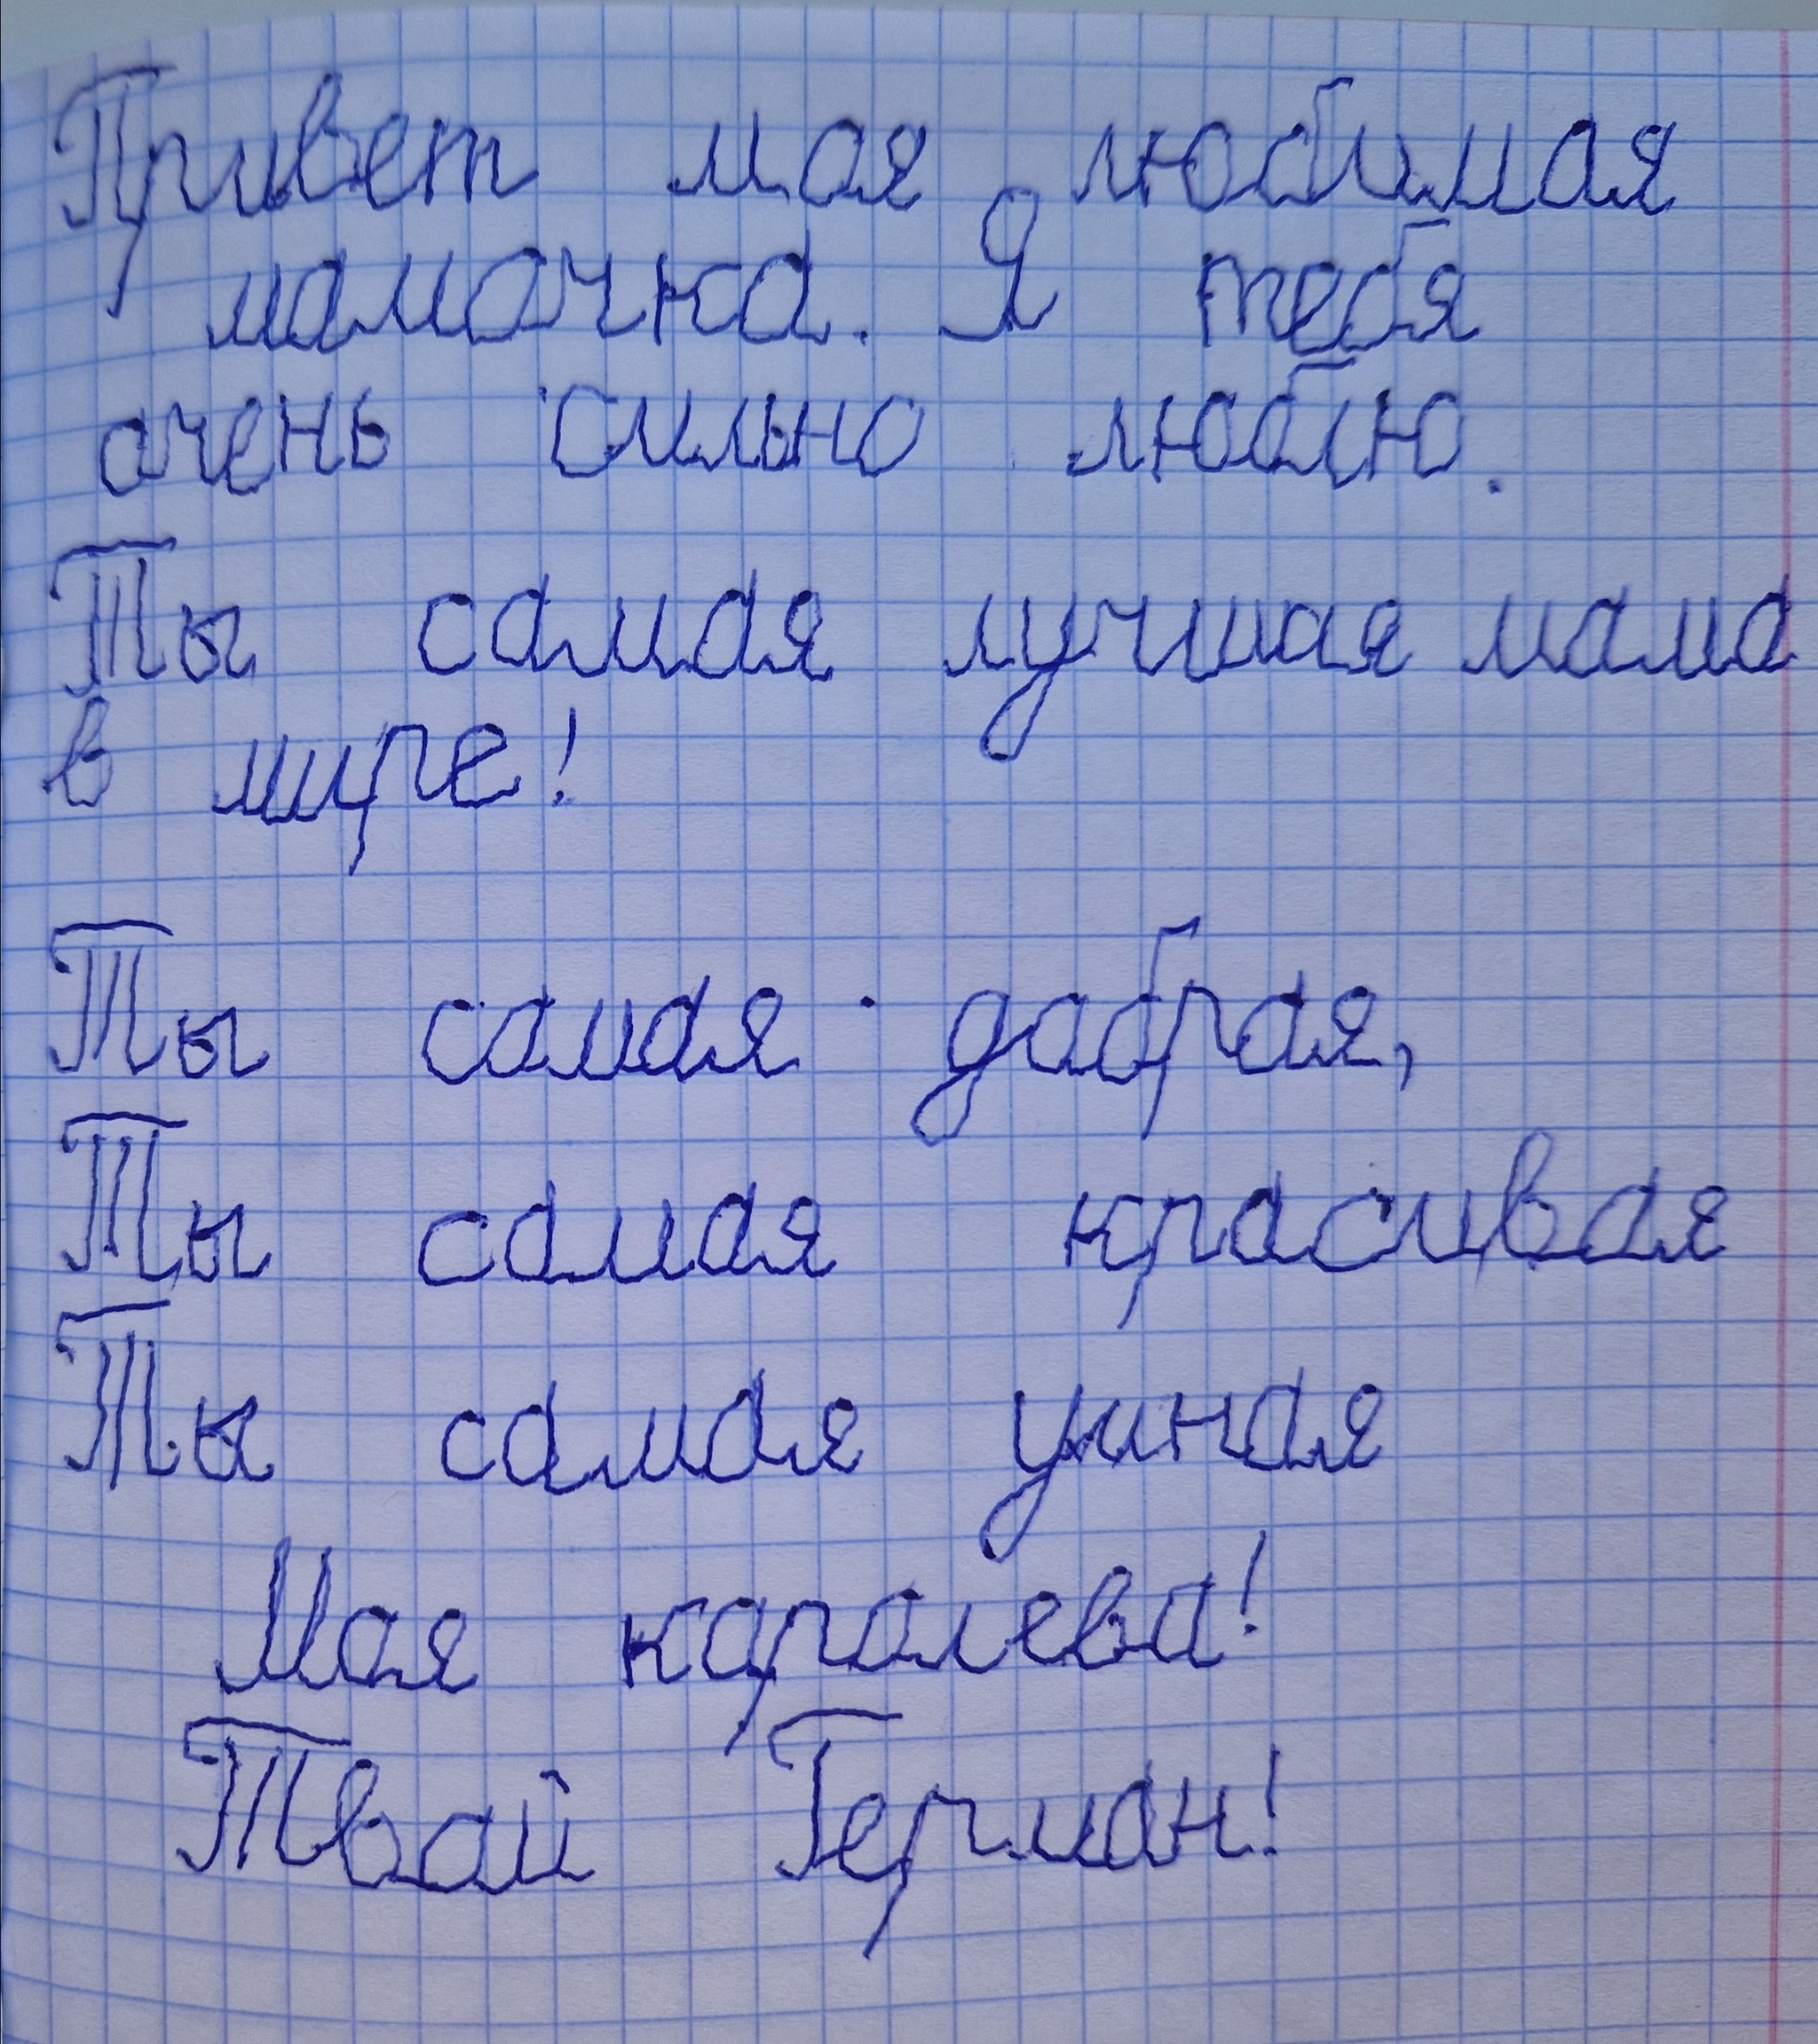 Привет моя любимая
мамочка. Я тебя
очень сильно люблю.
Ты самая лучшая мама
в мире!
Ты самая добрая,
Ты самая красивая
Ты самая умная
Моя каралева!
Твой Герман!